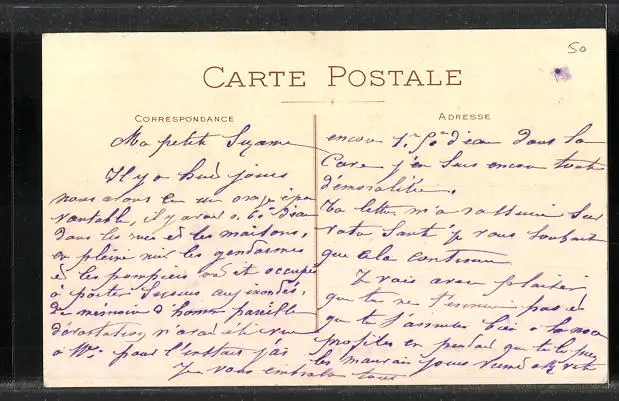 50
CARTE POSTALE
CORRESPONDANCE
ADRESSE
Ma petite Suzanne
Il y a huit jours
nous avons eu un orage épou
vantable, il y avait 0.60 d'eau
dans les rues et les maisons,
en pleine nuit les gendarmes
et les pompiers ont été occupés
à porter secours aux inondés,
de memoire d'homme pareille
dévastation n'avait été vue
à pour l'instant j'ai
encore 1.50 d'eau dans la
Cave j'en suis encore toute
démoralisée.
Ta lettre m'a rassurée sur
votre santé je vous souhaite
que cela continue.
Je vois avec plaisir
que tu ne t'ennuie pas et
que tu t'amuses bien
profites en pendant que tu le peux
les mauvais jours viendront vite
Je vous embrasse tous